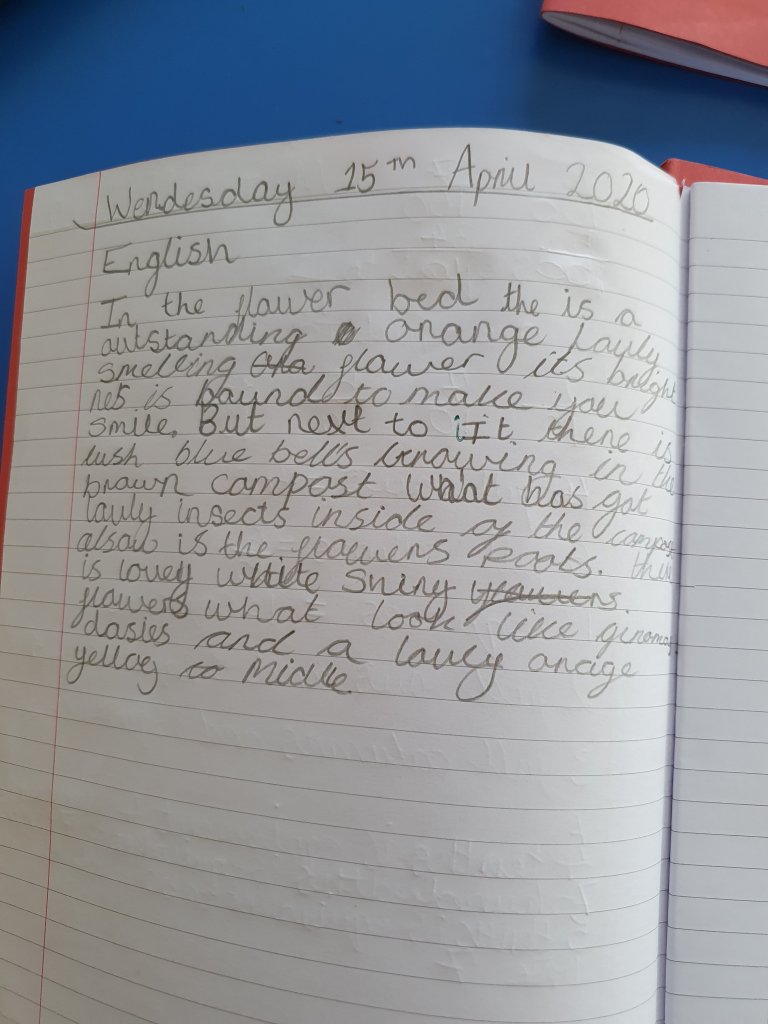 Wendesday 15th April 2020
English
In the flawer bed the is a
outstanding orange lauly
smelling flawer its bright
nes is baund to make you
smile. But next to it there is
lush blue bells Growing in the
brown compost what has got
lauly insects inside of the compost
alsow is the flawers roots.
is lovey white Shiny
flawers what look like
dasies and a lauly orange
yelloy Midlle.